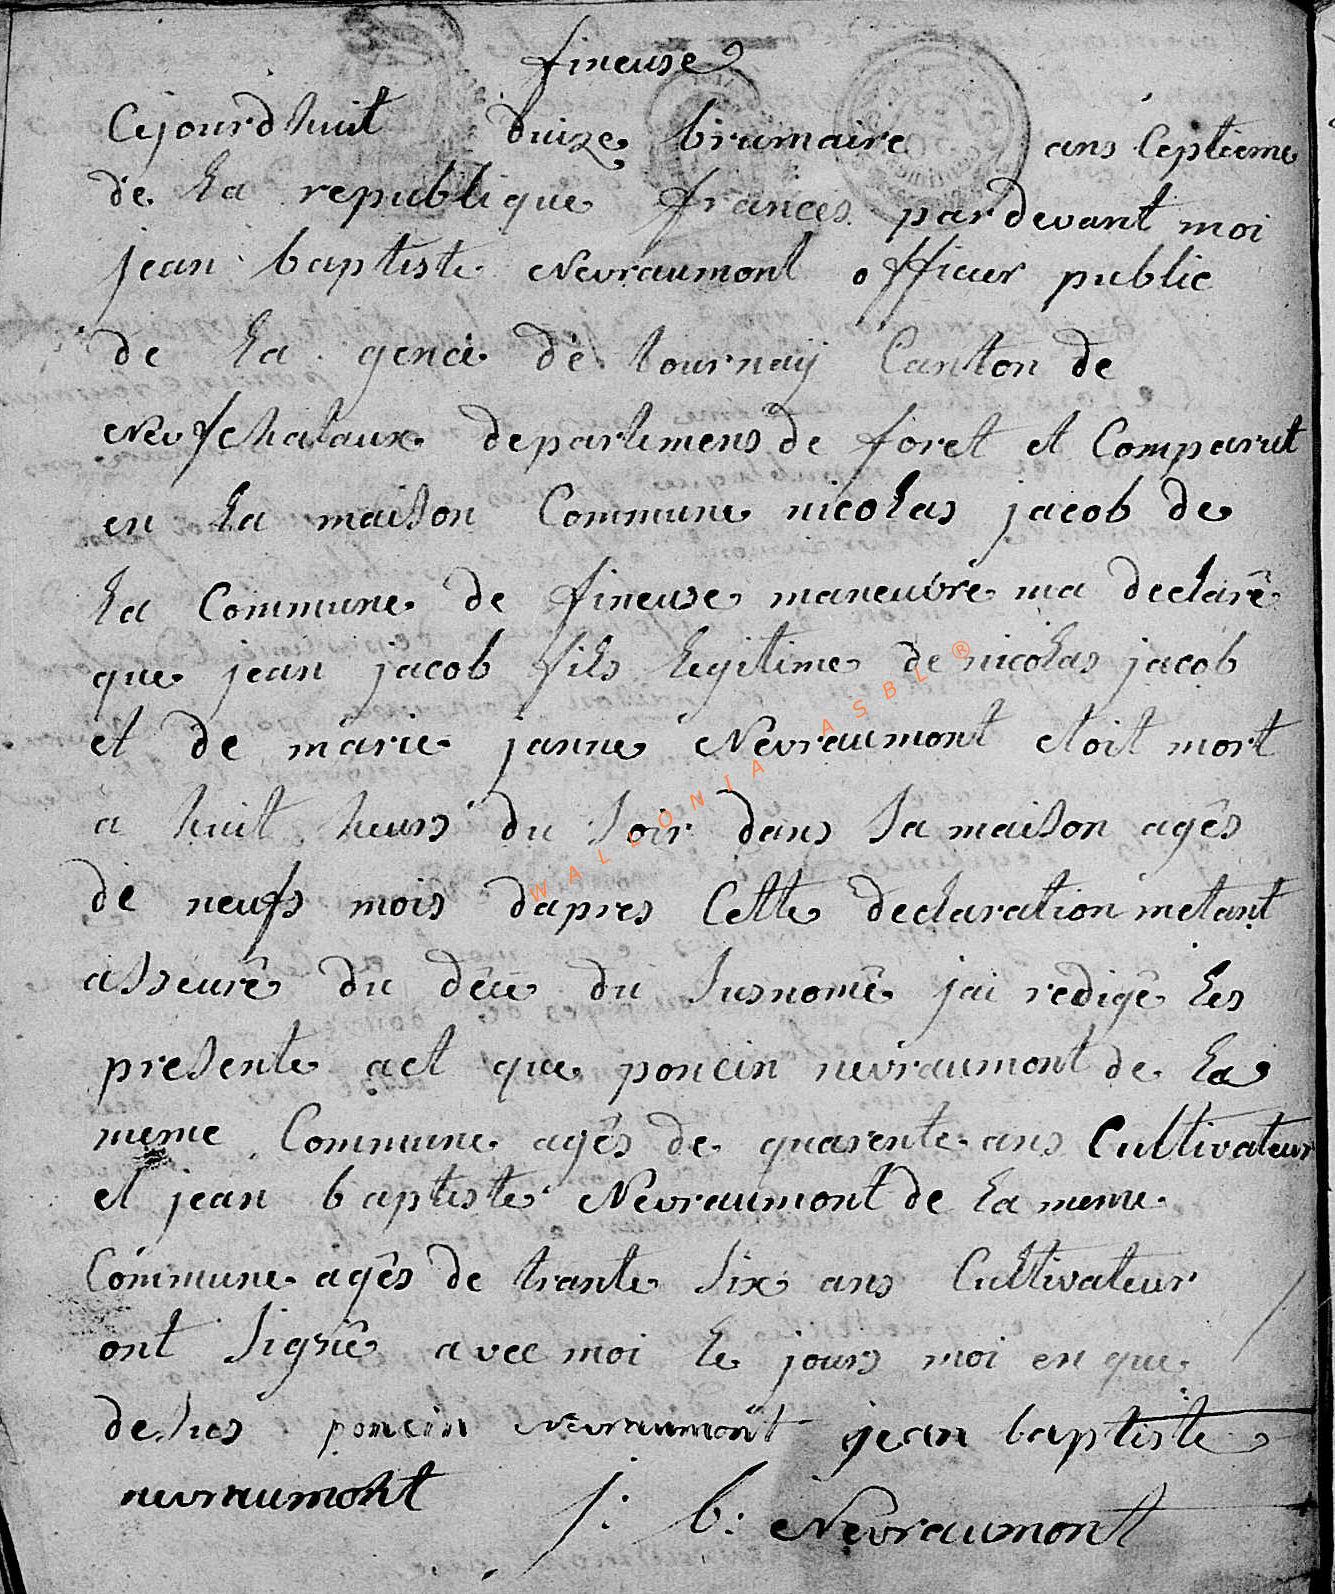 fineuse
Cejourdhuit duize brumaire ans Ceptieme
de la republique frances pardevant moi
jean baptiste Nevraumont officier public
de la gence de tournaÿ Canton de
Neufchataux departemens de foret et Comparut
en la maison Commune nicolas jacob de
la Commune de fineuse maneuvre ma declarê
que jean jacob fils legitime de nicolas jacob
et de marie janne Nevraumont etoit mort
a huit heurs du soir dans sa maison agês
de neufs mois dapres Cette declaration metant
asseurê du decê du susnomê jai redigê les
presente act que poncin nevraumont de la
meme Commune agês de quarente ans Cultivateur
et jean baptiste Nevraumont de la meme
Commune agês de trante six ans Cultivateur
ont signê avec moi le jours moi en que
desus poncin Nevraumont jean baptiste
nevraumont j: b: Nevraumont
WALLONIA ASBL ®